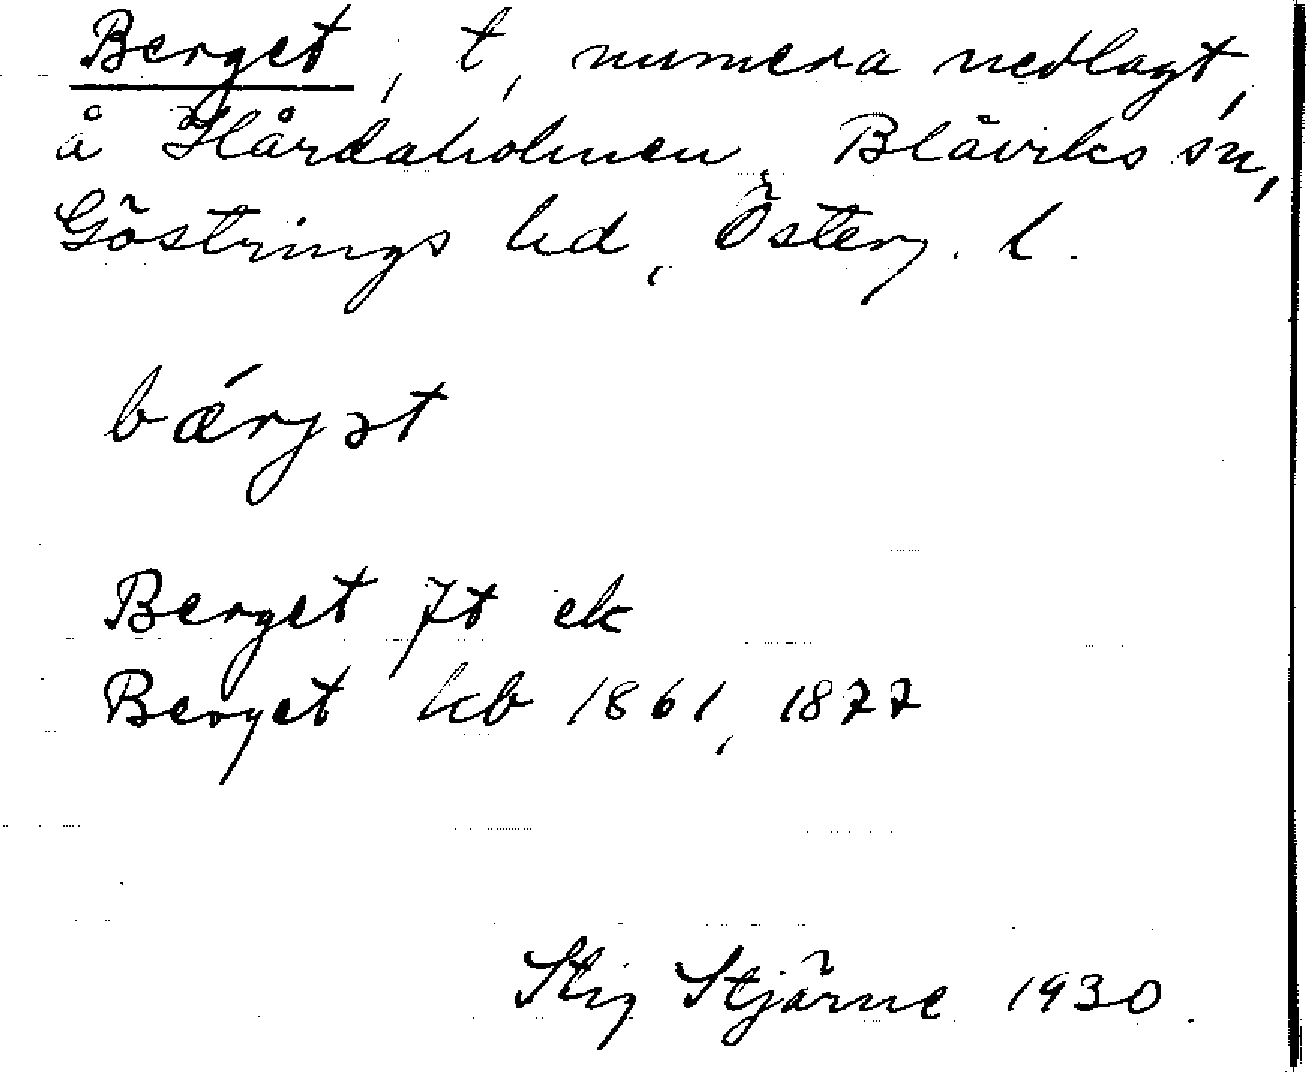 Berget, t, numera nedlagt,
å Hårdaholmen, Blåviks sn,
Göstrings hd, Österg. l.
bǽrjət
Berget Jt ek
Berget kb 1861, 1877
Stig Stjärne 1930.